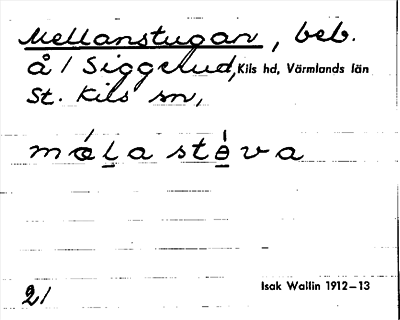 Mellanstugan, beb.
å / Siggerud, Kils hd, Värmlands län
St. Kils sn,
mǽl̲a stè̲va
2/
Isak Wallin 1912–13